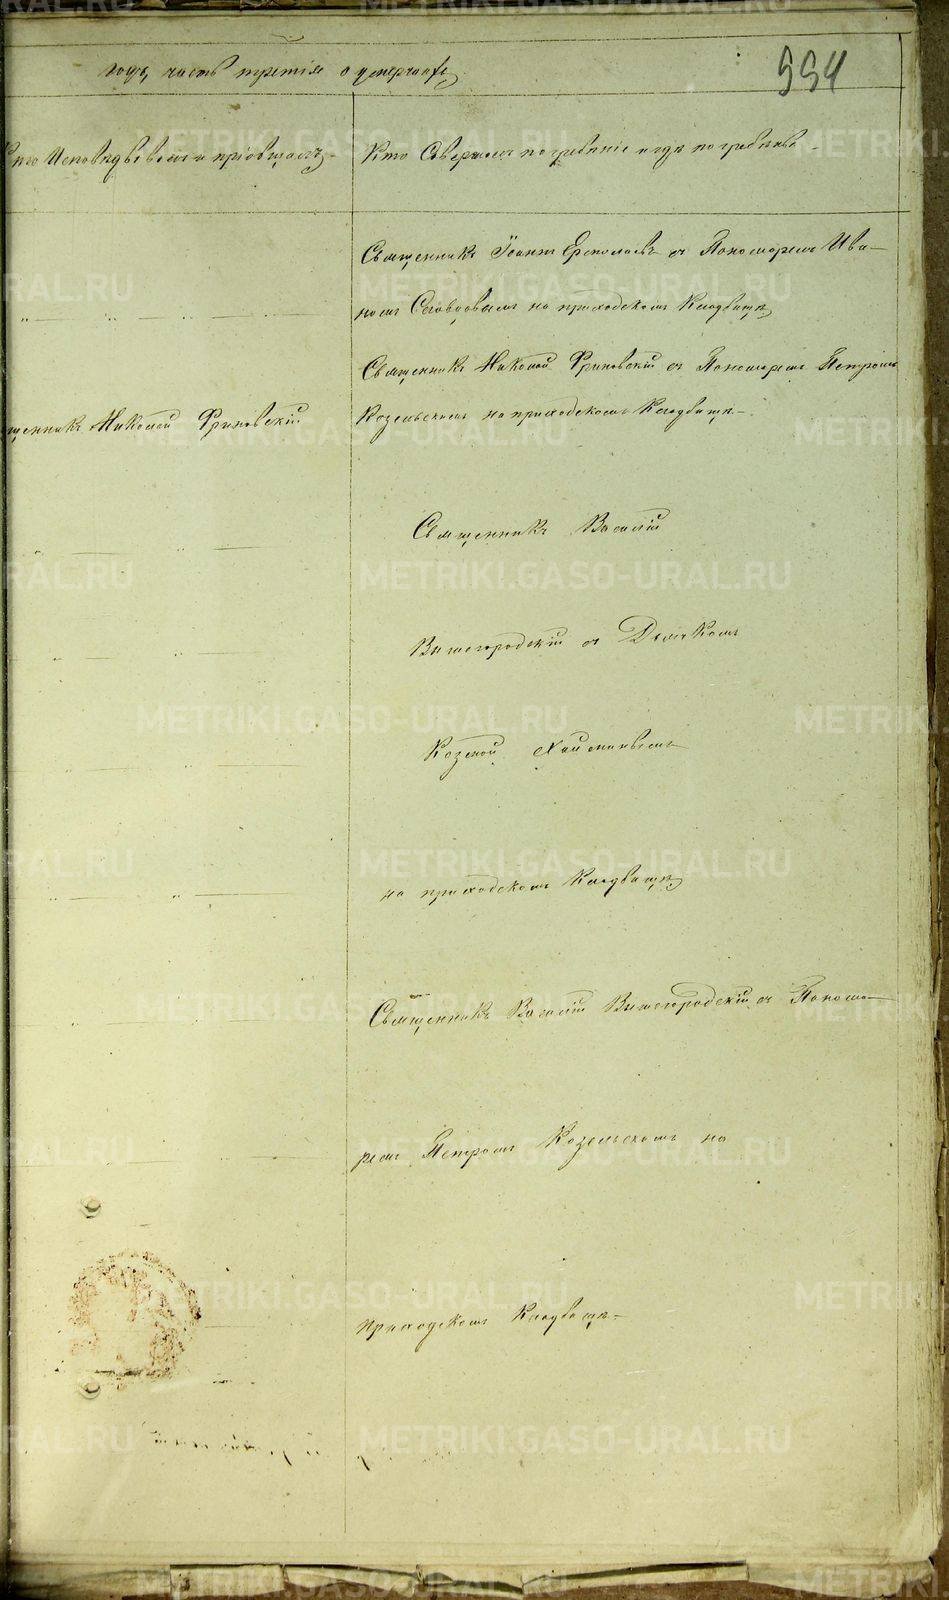 годъ, часть третія о умершихъ
994
Кто Исповѣдывалъ и пріобщалъ
Кто Совершалъ погребеніе и гдѣ погребены
Священникъ Іоаннъ Ермолаевъ съ Пономаремъ Ива-
номъ на приходскомъ Кладбищѣ
Священникъ Николай Фриновскій съ Пономаремъ Петромъ
щенникъ Николай Фриновскій
Козельскимъ на приходскомъ Кладбищѣ
Священникъ Василій
Вышегородскій съ Дьячкомъ
Козмой
на приходскомъ Кладбищѣ
Священникъ Василій Вышегородскій съ Понома-
ремъ Петромъ Козельскимъ на
приходскомъ Кладбищѣ
METRIKI.GASO-URAL.RU